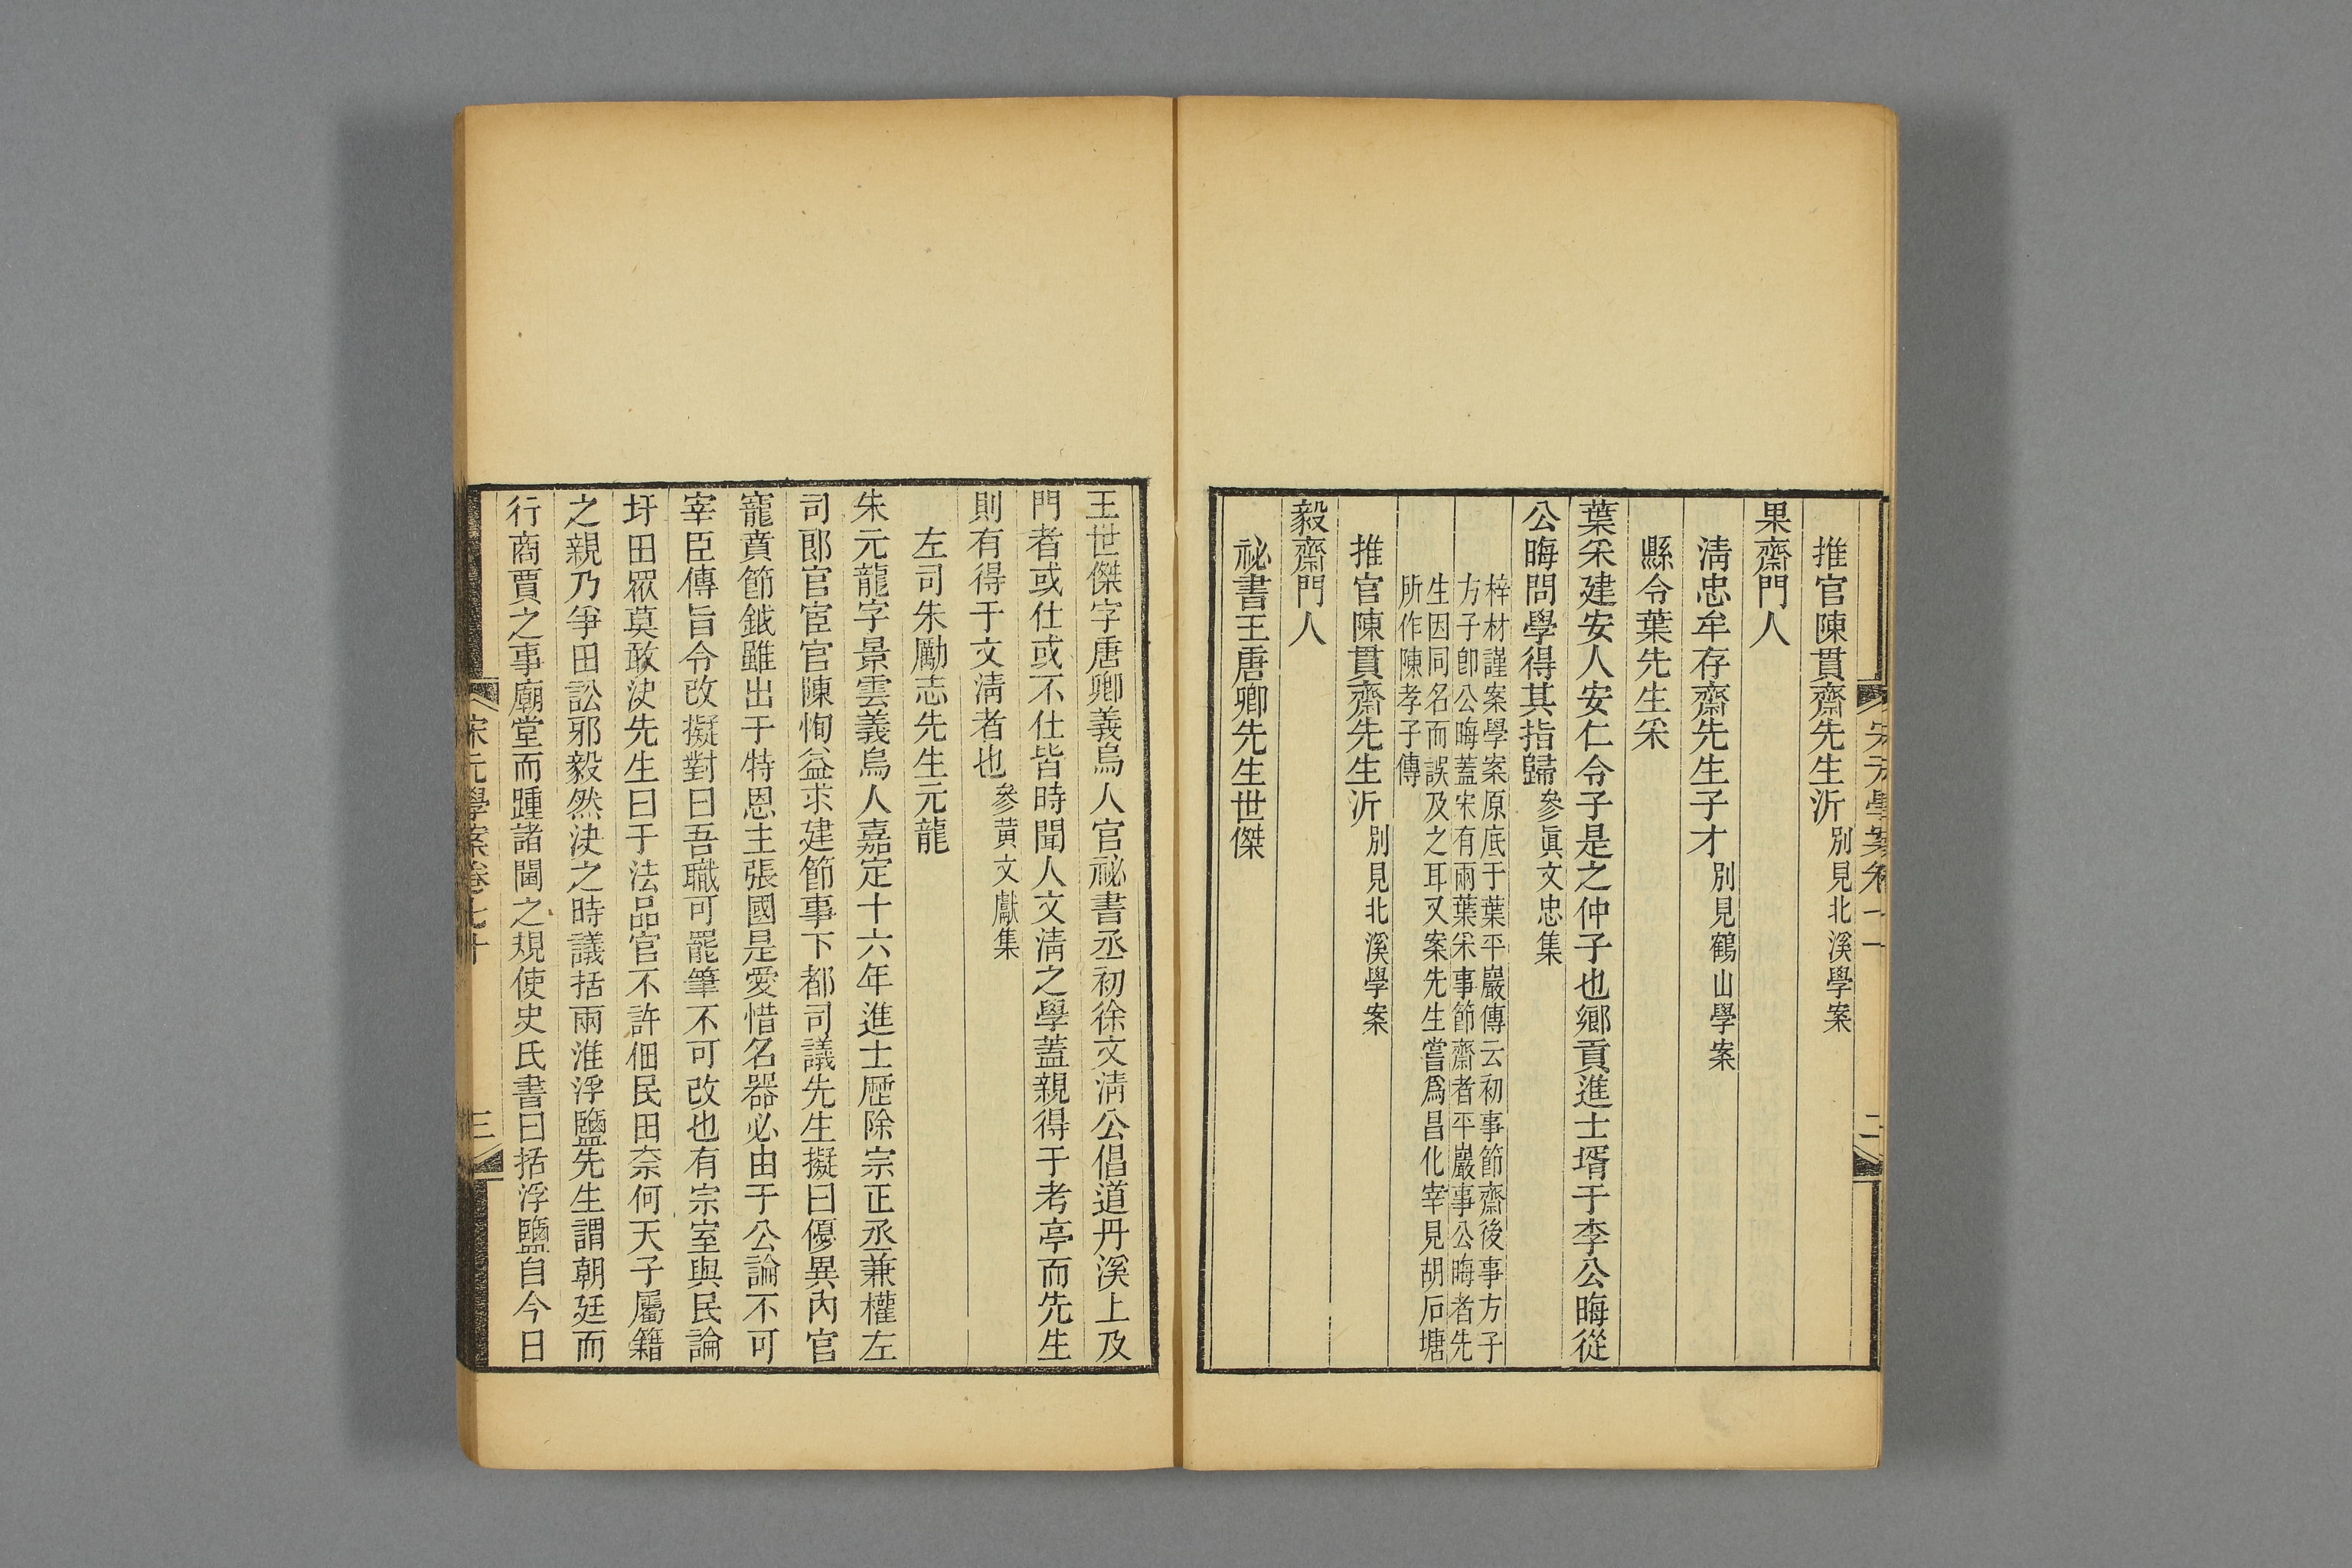 推官陳貫齋先生沂別見北溪學案
果齋門人
淸忠牟存齋先生子才別見鶴山學案
縣令葉先生釆
葉釆建安人安仁令子是之仲子也鄉貢進士壻于李公晦從
公晦問學得其指歸參眞文忠集
梓材謹案學案原底于葉平巖傳云初事節齋後事方子
方子卽公晦蓋宋有兩葉釆事節齋者平巖事公晦者先
生因同名而誤及之耳又案先生嘗爲昌化宰見胡石塘
所作陳孝子傳
推官陳貫齋先生沂別見北溪學案
毅齋門人
祕書王唐卿先生世傑
王世傑字唐卿義烏人官祕書丞初徐文淸公倡道丹溪上及
門者或仕或不仕皆時聞人文淸之學蓋親得于考亭而先生
則有得于文淸者也參黃文獻集
左司朱勵志先生元龍
朱元龍字景雲義烏人嘉定十六年進士歷除宗正丞兼權左
司郎官宦官陳恂益求建節事下都司議先生擬曰優異內官
寵賁節鉞雖出于特恩主張國是愛惜名器必由于公論不可
宰臣傳旨令改擬對曰吾職可罷筆不可改也有宗室與民論
圩田眾莫敢決先生曰于法品官不許佃民田奈何天子屬籍
之親乃爭田訟邪毅然決之時議括兩淮浮鹽先生謂朝廷而
行商賈之事廟堂而踵諸閫之規使史氏書曰括浮鹽自今日
宋元學案卷七十
三